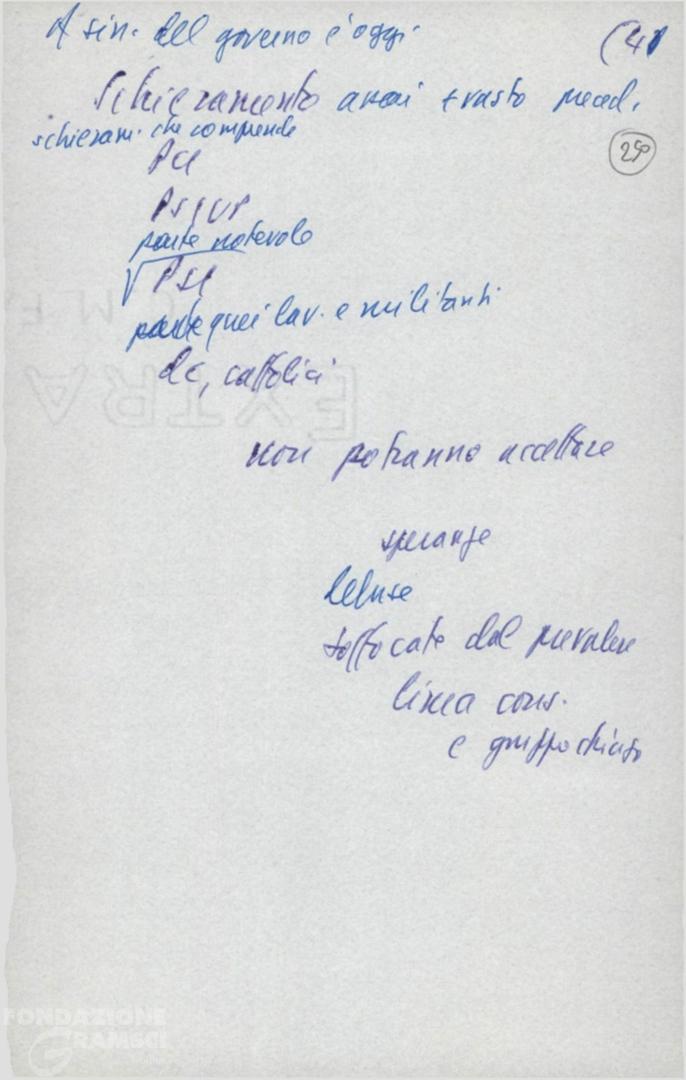 A sin. del governo è oggi (41
Schieramento assai + vasto preced.
schieram. che comprende
29
PCI
PSIUP
parte notevole
√ PSI
parte quei lav. e militanti
dc, cattolici
EXTRA
non potranno accettare
speranze
deluse
soffocate dal prevalere
linea cons.
e gruppo chiuso
FONDAZIONE
GRAMSCI